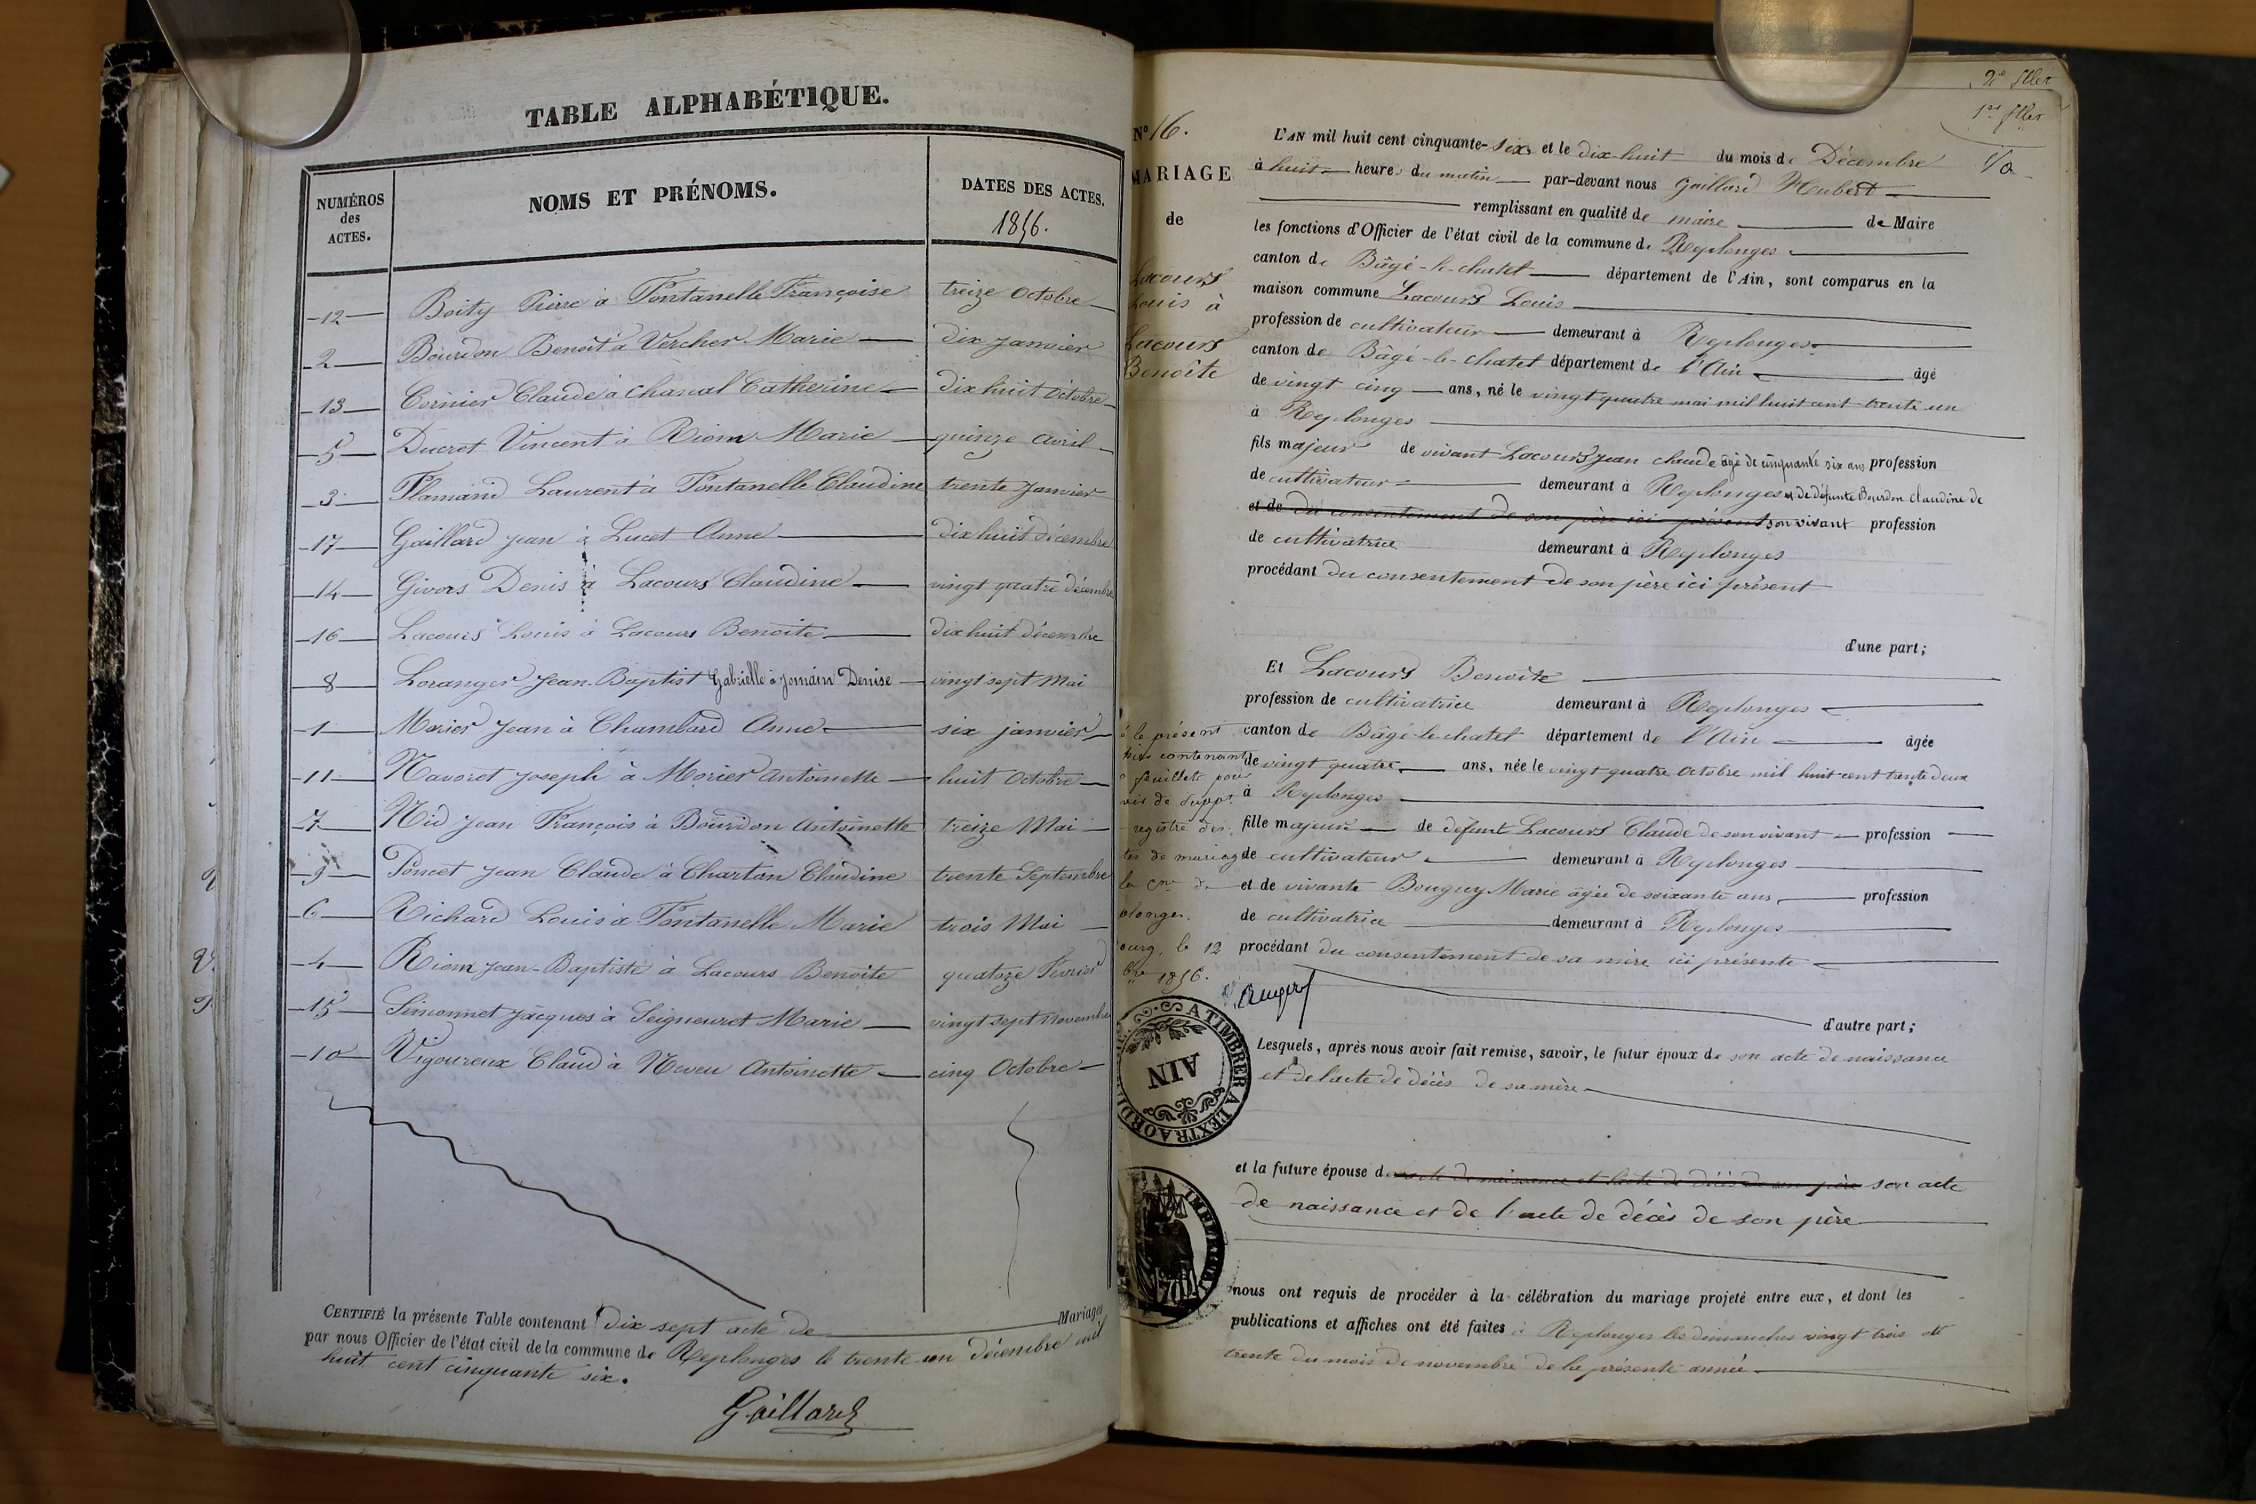 TABLE ALPHABÉTIQUE.
NUMÉROS
des
ACTES.
NOMS ET PRÉNOMS.
DATES DES ACTES.
1856.
12 Boity Pierre à Fontanelle Françoise treize Octobre
2 Bourdon Benoît à Vercher Marie dix janvier
13 Cornier Claude à Chanal Catherine dix huit Octobre
5 Ducret Vincent à Riom Marie quinze avril
3 Flamand Laurent à Fontanelle Claudine trente janvier
17 Gaillard jean à Lucet Anne dix huit décembre
14 Givors Denis à Lacours Claudine vingt quatre décembre
16 Lacours Louis à Lacours Benoite dix huit décembre
8 Loranger Jean-Baptist Gabrielle à Jomain Denise vingt sept Mai
1 Morier Jean à Chambard Anne six janvier
11 Navoret Joseph à Morier Antoinette huit Octobre
7 Nid Jean François à Bourdon Antoinette treize Mai
9 Poncet Jean Claude à Charton Claudine trente Septembre
6 Richard Louis à Fontanelle Marie trois Mai
4 Riom Jean-Baptiste à Lacours Benoite quatorze Fevrier
15 Simonnet Jacques à Seigneuret Marie vingt sept Novembre
10 Vigoureux Claud à Neveu Antoinette cinq Octobre
CERTIFIÉ la présente Table contenant dix sept acte de Mariages
par nous Officier de l'état civil de la commune de Replonges le trente un décembre mil
huit cent cinquante six.
Gaillard
2e fllet
1er fllet
N° 16.
MARIAGE
de
Lacours
Louis à
Lacours
Benoite
L'AN mil huit cent cinquante-six et le dix huit du mois de Décembre
à huit heures du matin par-devant nous Gaillard Hubert
remplissant en qualité de maire de Maire
les fonctions d'Officier de l'état civil de la commune de Replonges
canton de Bâgé-le-chatel département de l'Ain, sont comparus en la
maison commune Lacours Louis
profession de cultivateur demeurant à Replonges
canton de Bâgé-le-chatel département de l'Ain âgé
de vingt cinq ans, né le vingt quatre mai mil huit cent trente un
à Replonges
fils majeur de vivant Lacours Jean claude âgé de cinquante six ans profession
de cultivateur demeurant à Replonges et de défunte Bourdon claudine de
et de du consentement de son père ici présent son vivant profession
de cultivatrice demeurant à Replonges
procédant du consentement de son père ici présent
d'une part;
Et Lacours Benoite
profession de cultivatrice demeurant à Replonges
canton de Bâgé-le-chatel département de l'Ain âgée
de vingt quatre ans, née le vingt quatre Octobre mil huit cent trente deux
à Replonges
fille majeure de defunt Lacours Claude de son vivant profession
de cultivateur demeurant à Replonges
et de vivante Bouguy Marie âgée de soixante ans profession
de cultivatrice demeurant à Replonges
procédant du consentement de sa mère ici présente
d'autre part;
le présent
contenant
feuillets pour
de suppt
registre des
de mariage
la cne de
plonges.
ourg, le 12
bre 1856.
A TIMBRER A L'EXTRAORDI
AIN
Lesquels, après nous avoir fait remise, savoir, le futur époux de son acte de naissance
et de l'acte de décès de sa mère
et la future épouse d acte de naissance et l'acte de décès de son père son acte
de naissance et de l'acte de décès de son père
nous ont requis de procéder à la célébration du mariage projeté entre eux, et dont les
publications et affiches ont été faites à Replonges les dimanches vingt trois et
trente du mois de novembre de la présente année